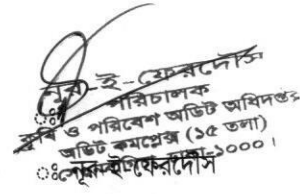 নূর-ই-ফেরদৌস
পরিচালক
কৃষি ও পরিবেশ অডিট অধিদপ্তর
অডিট কমপ্লেক্স (১৫ তলা)
-১০০০।
নূর-ই-ফেরদৌস